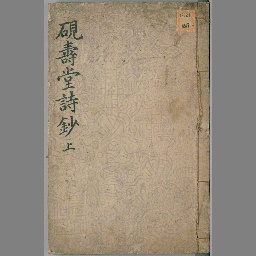 硯壽堂詩鈔上